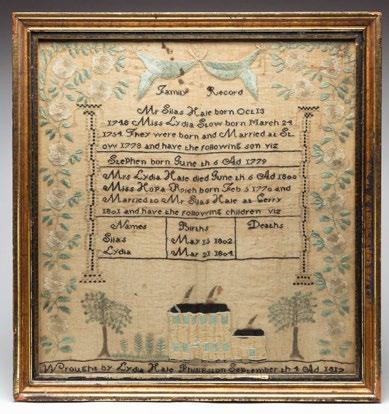 Family Record
Mr Silas Hale born Oct 13
1748 Miss Lydia Stow born March 24
1754 They were born and Married at St
ow 1778 and have the following son viz
Stephen born June th 6 Ad 1779
Mrs Lydia Hale died June th 6 Ad 1800
Miss born Feb 5 1770 and
Married to Mr Silas Hale at Gerry
1801 and have the following children viz
Names Births Deaths
Silas May 13 1802
Lydia Mar 21 1804
Wrought by Lydia Hale Phillipston September th 4 Ad 1817